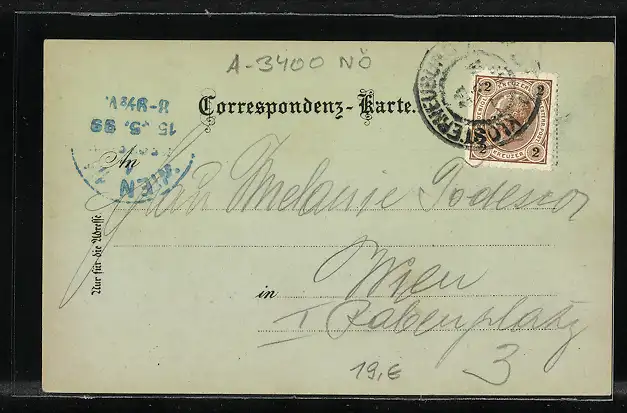 A-3400 NÖ
Correspondenz-Karte.
KLOSTERNEUBURG
2 KREUZER 2
KREUZER 2
WIEN
15.5.99
8-9½V.
An
Melanie Todescor
in Wien
I Rabenplatz
3
Nur für die Adresse
19,€